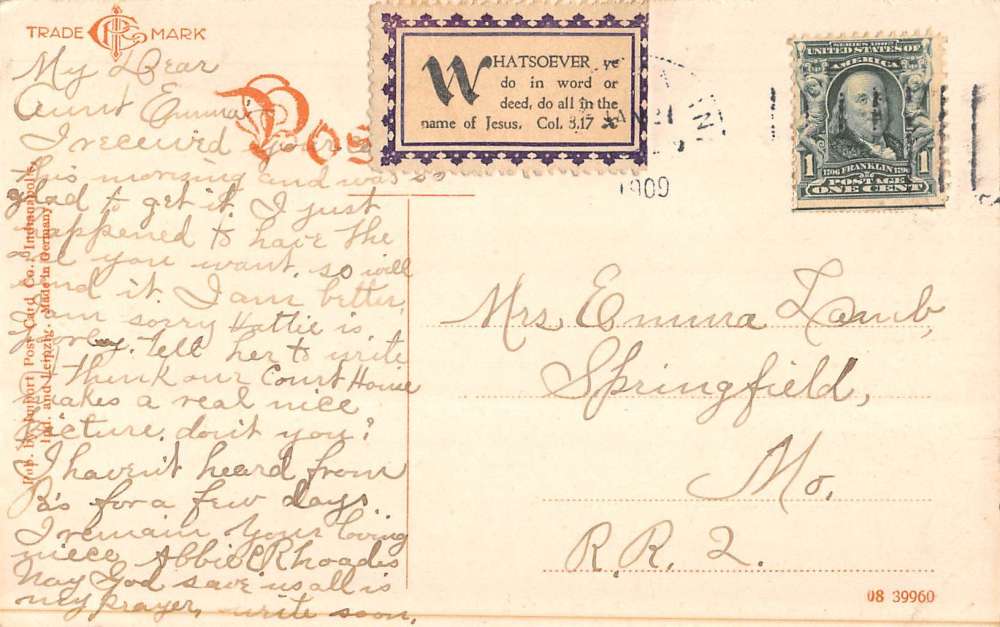 TRADE MARK
My Dear
Aunt Emma:
I received your
this morning and was so
glad to get it. I just
happened to have the
one you want, so will
send it. I am better,
am sorry Hattie is
poorly. Tell her to write
I think our Court House
makes a real nice
picture, don't you?
I haven't heard from
B's for a few days.
I remain your loving
niece Abbie Rhoades
May God save us all is
my prayer, write soon.
Pub. by Import Post Card Co. Indianapolis,
Ind. and Leipzig. Made in Germany
Pos
WHATSOEVER ye
do in word or
deed, do all in the
name of Jesus. Col. 3,17
1909
SERIES 1902
UNITED STATES OF
AMERICA
1
1706 FRANKLIN 1790
1
POSTAGE
ONE CENT
Mrs. Emma Lamb,
Springfield,
Mo.
R.R. 2.
08 39960